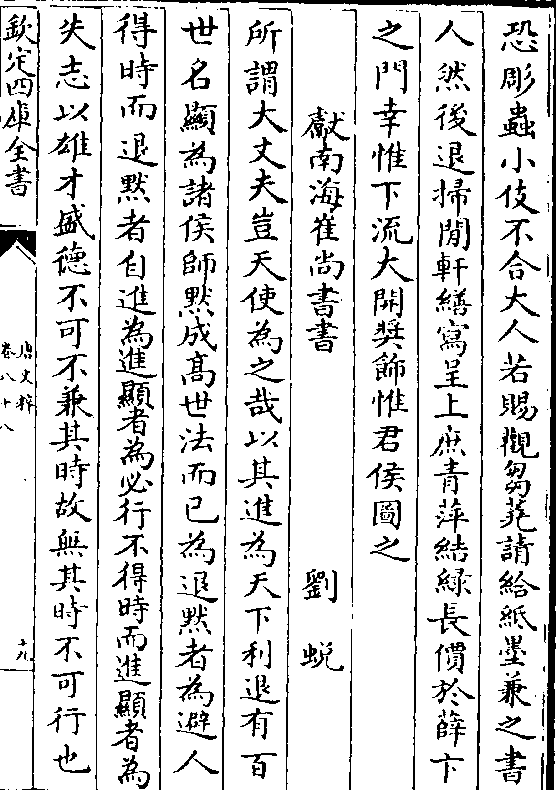 恐彫蟲小伎不合大人若賜觀芻蕘請給紙墨兼之書
人然後退掃閒軒繕寫呈上庶青萍結綠長價於薛卞
之門幸惟下流大開奬飾惟君侯圖之
獻南海崔尚書書 劉蛻
所謂大丈夫豈天使為之哉以其進為天下利退有百
世名顯為諸侯師默成髙世法而已為退默者為避人
得時而退默者自進為進顯者為必行不得時而進顯者為
失志以雄才盛徳不可不兼其時故無其時不可行也
欽定四庫全書
唐文粹
卷八十八
十九